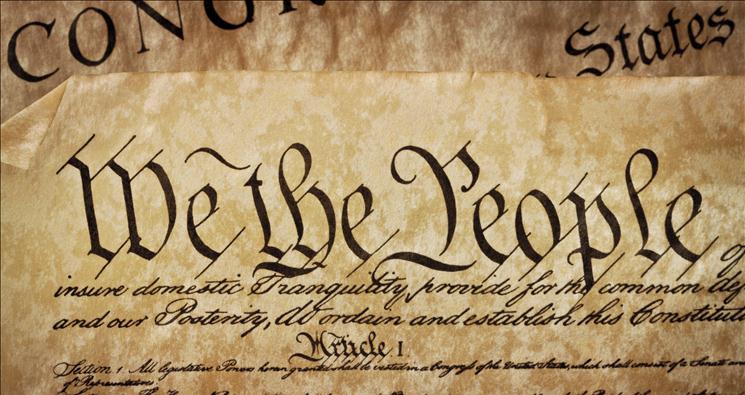 CONGR
States
We the People of
insure domestic Tranquility, provide for the common def
and our Posterity, do ordain and establish this Constitut
Article I
Section 1. All legislative Powers herein granted shall be vested in a Congress of the United States, which shall consist of a Senate and
of Representatives.